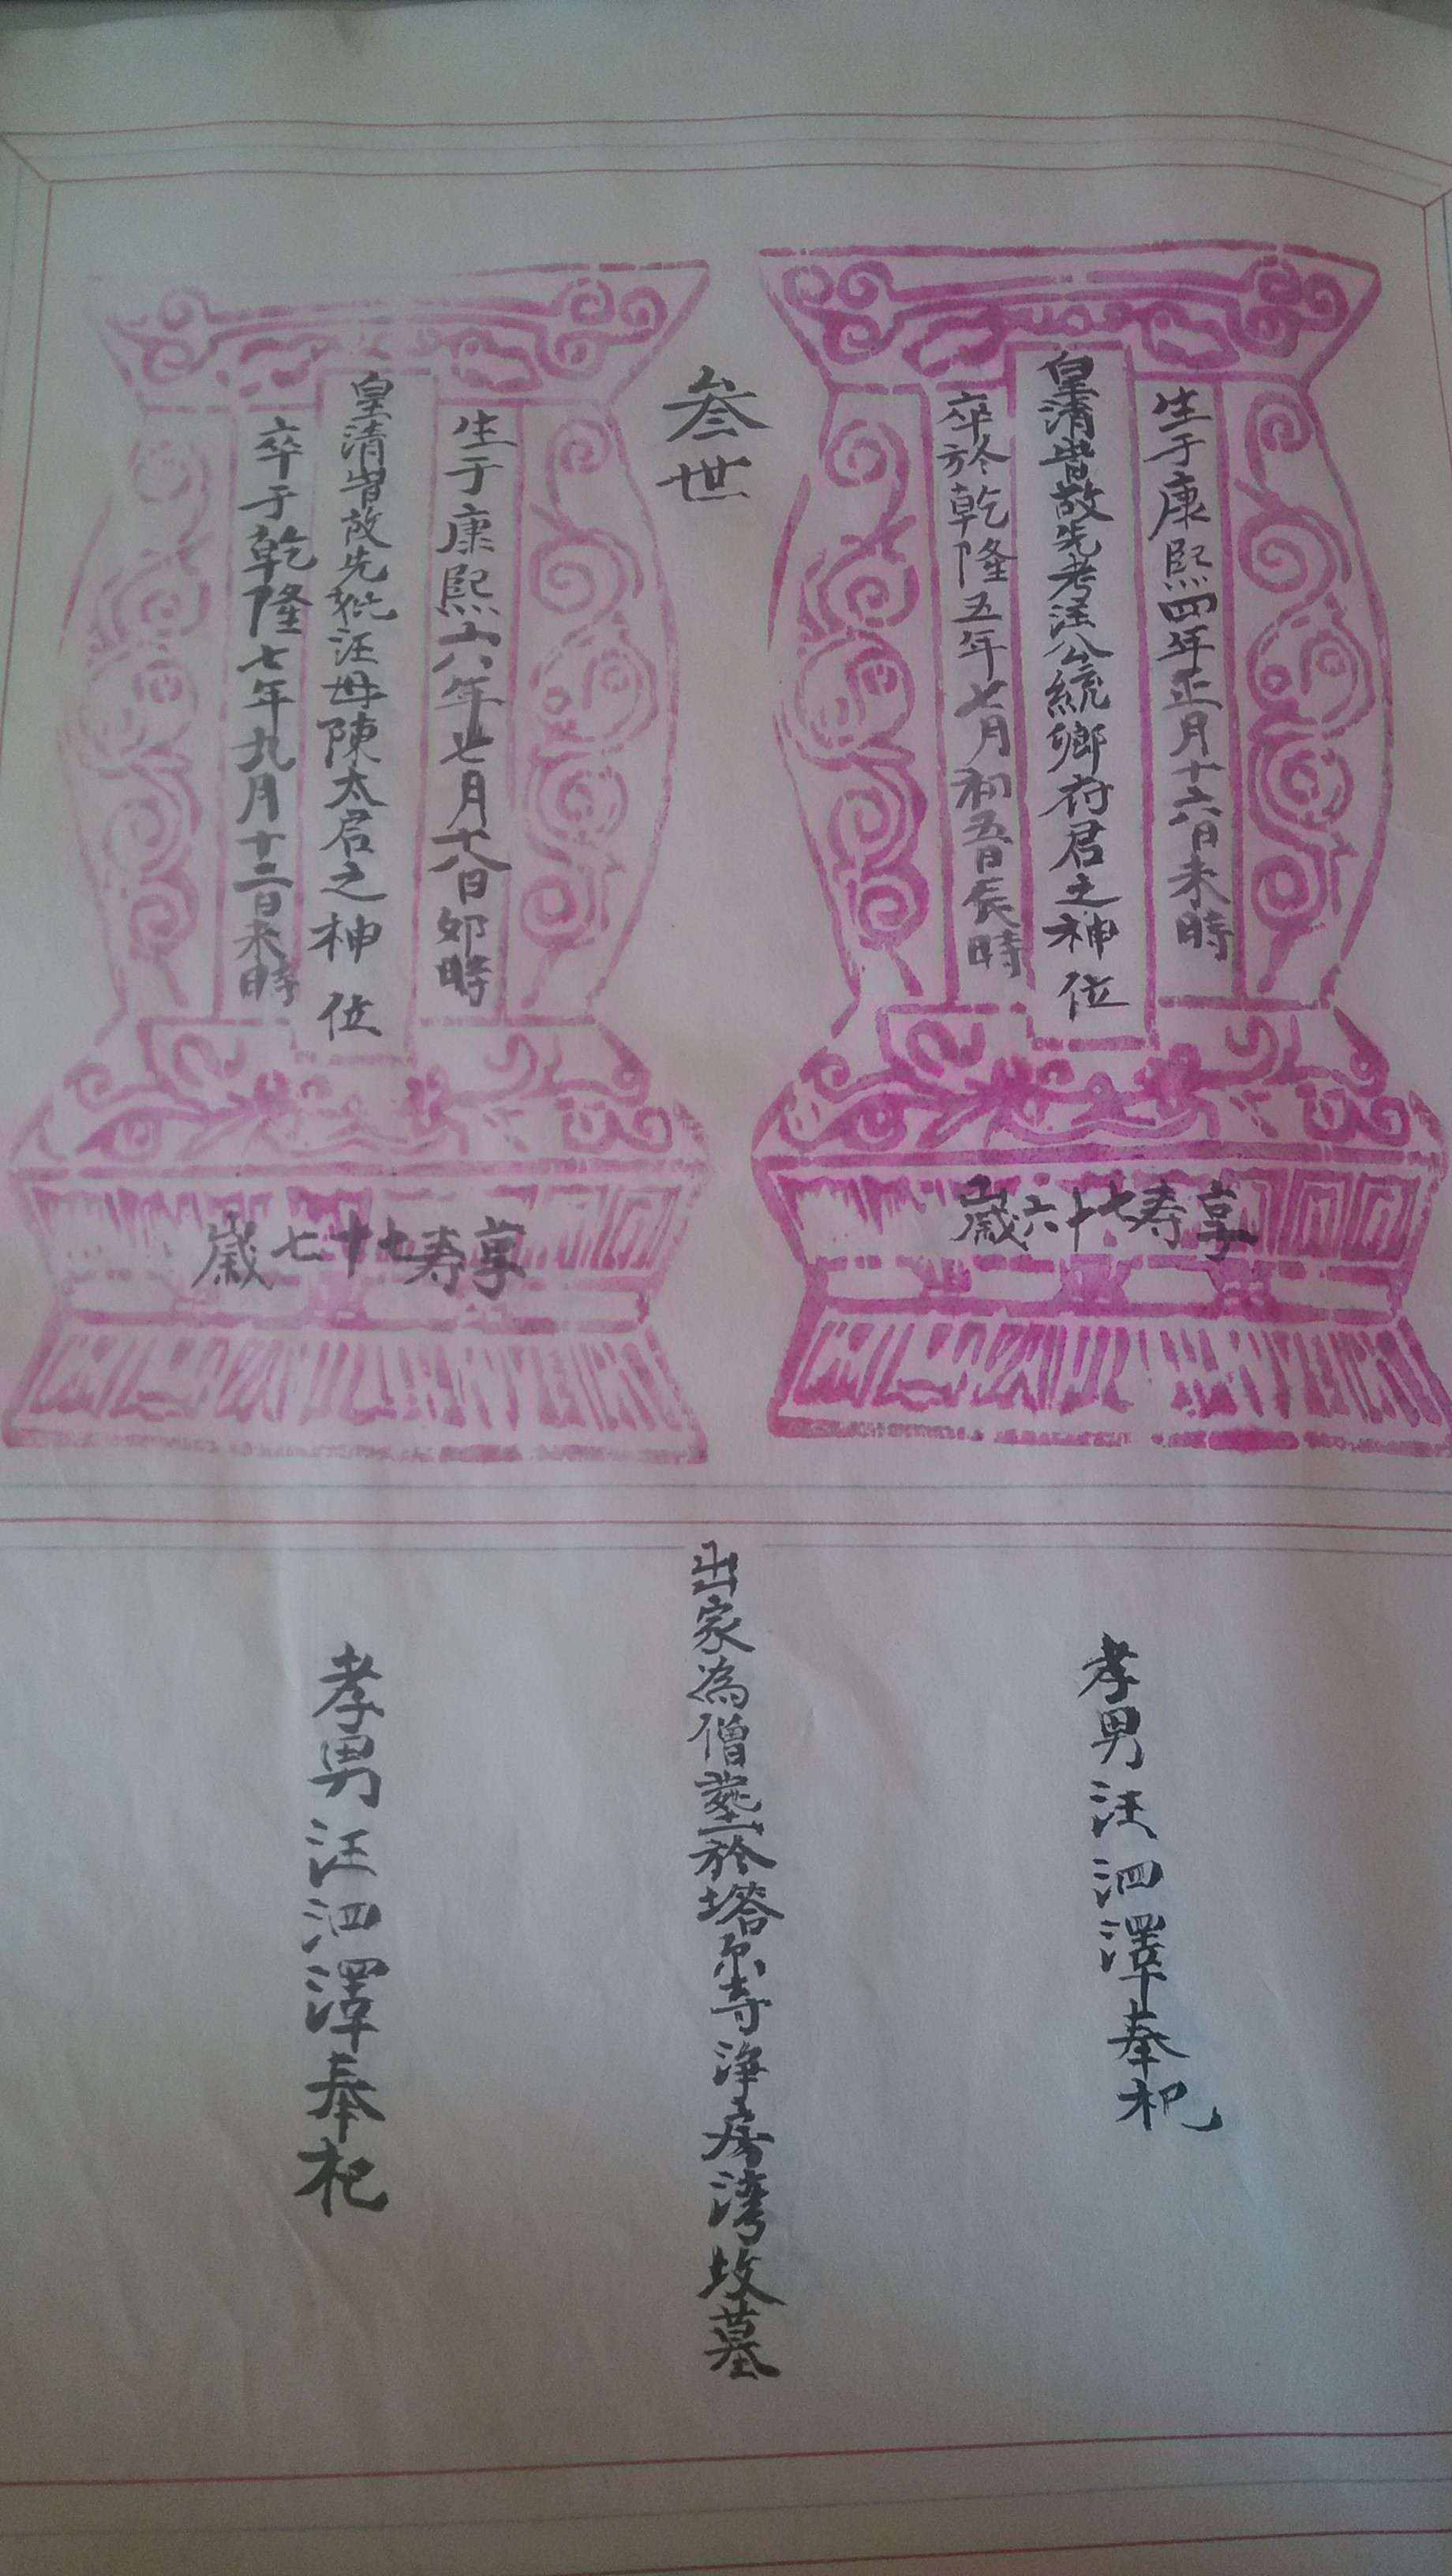 叁世
生于康熙四年正月十六日未時
皇清皆故先考汪公統鄉府君之神位
卒於乾隆五年七月初五日辰時
享寿七十六歲
生于康熙六年七月十八日卯時
皇清皆故先妣汪母陳太君之神位
卒于乾隆七年九月十二日未時
享寿七十七歲
孝男汪泗澤奉祀
出家為僧墓於塔尔寺淨房湾坟墓
孝男汪泗澤奉祀